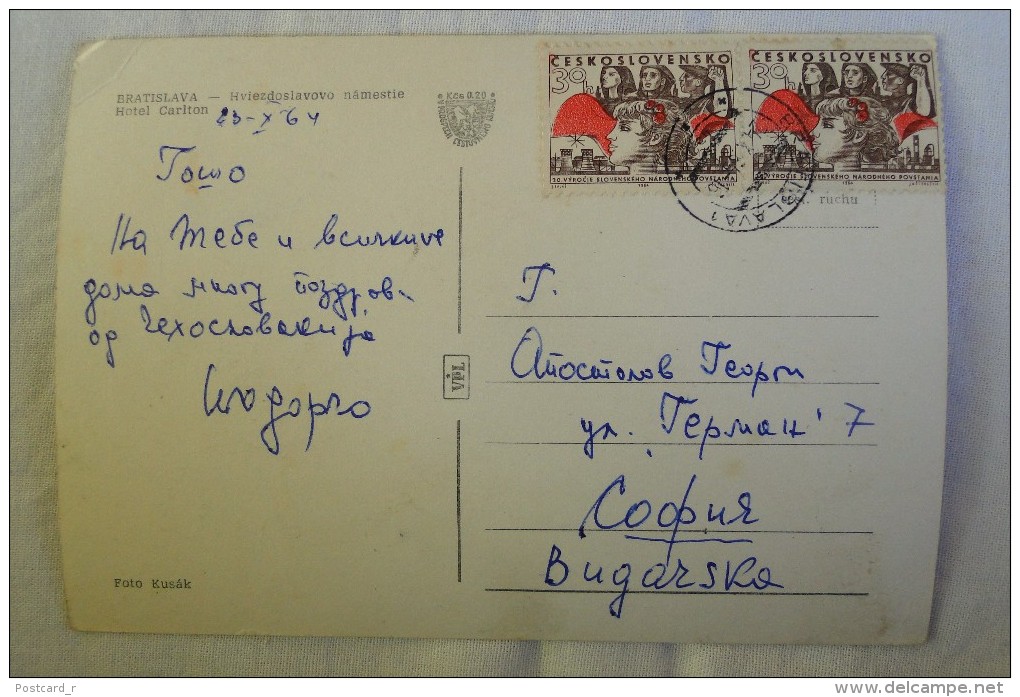 BRATISLAVA — Hviezdoslavovo námestie
Hotel Carlton
23-X 64
Гошо
На тебе и всичкиче
дома многу поздрав.
од Чехословакија
Foto Kusák
Kčs 0.20
ČESKOSLOVENSKO
30h
20. VÝROČIE SLOVENSKÉHO NÁRODNÉHO POVSTANIA
1964
ČESKOSLOVENSKO
30h
20. VÝROČIE SLOVENSKÉHO NÁRODNÉHO POVSTANIA
1964
ruchu
Г.
Апостолов Георги
ул. Герман 7
София
Bugarska
Postcard_r
delcampe.net